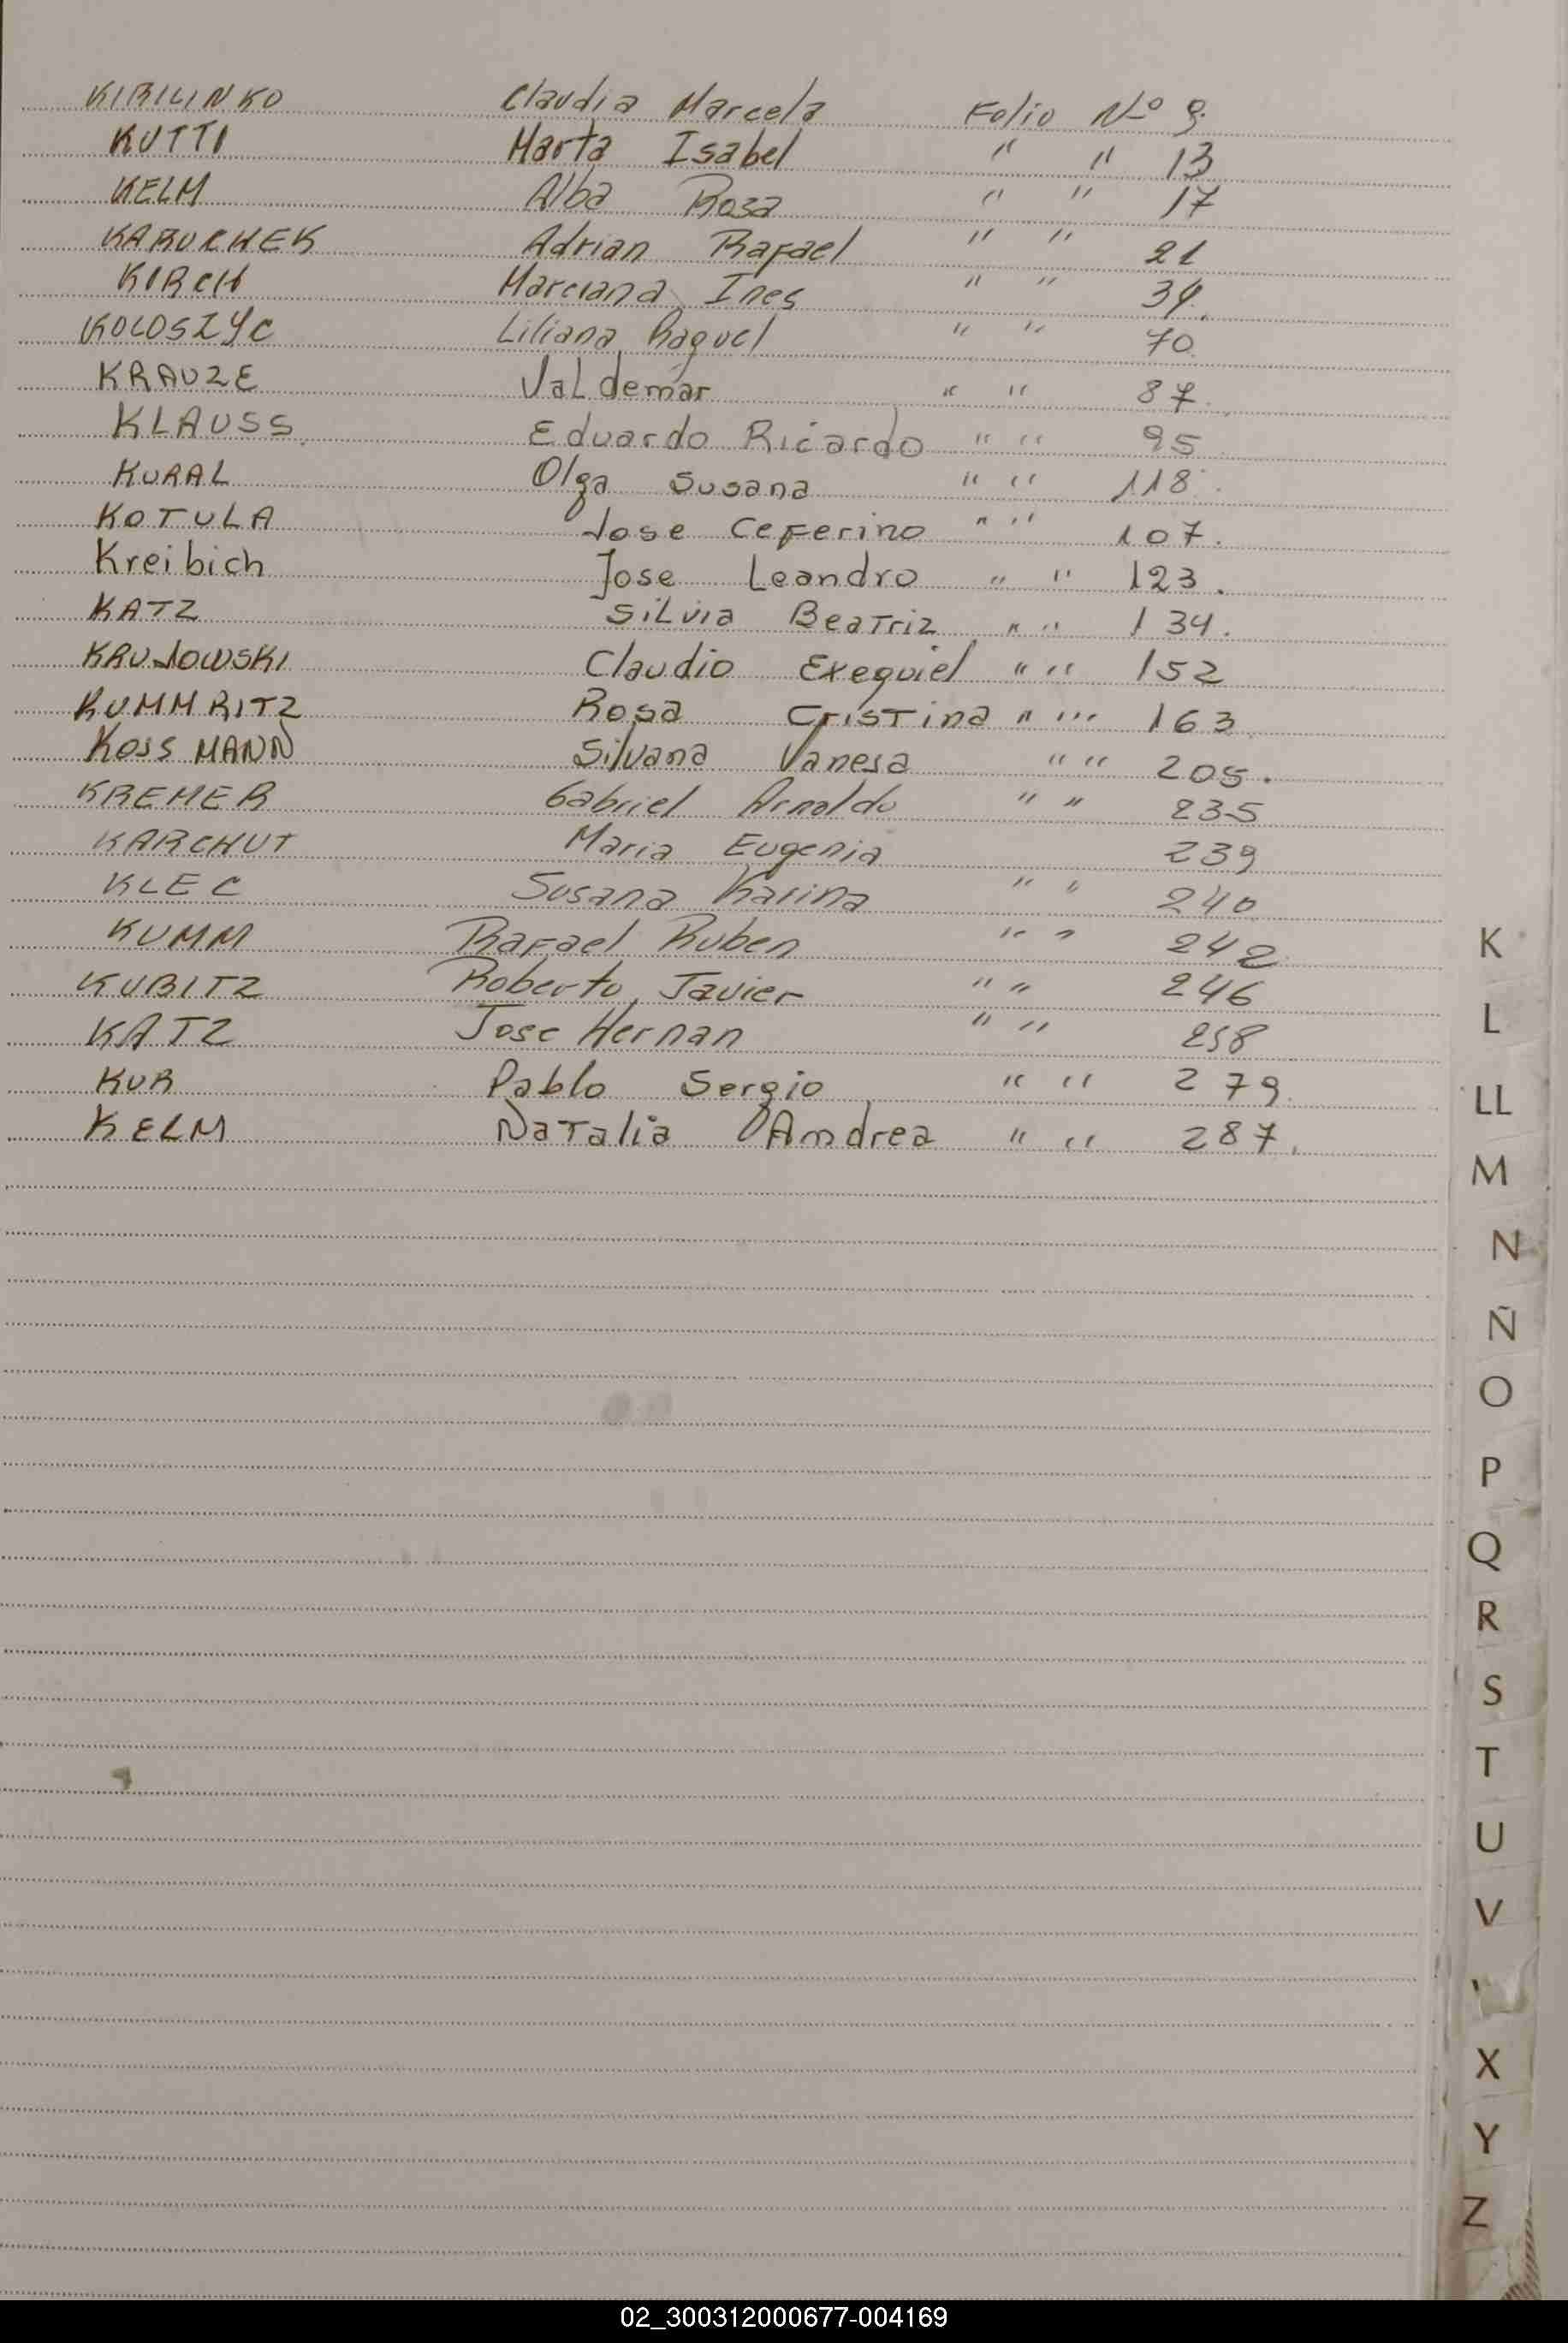 KIRILINKO Claudia Marcela Folio Nº 9.
KUTTI Marta Isabel " " 13
KELM Alba Rosa " " 17
KARUCHEK Adrian Rafael " " 21
KIRCH Marciana Ines " " 34.
KOLOSZYC Liliana Raquel " " 70.
KRAUZE Valdemar " " 87.
KLAUSS. Eduardo Ricardo " " 95
KURAL Olga Susana " " 118.
KOTULA Jose Ceferino " " 107.
Kreibich Jose Leandro " " 123.
KATZ Silvia Beatriz " " 134.
KRUJOWSKI Claudio Exequiel " " 152
KUMMRITZ Rosa Cristina " " 163
KOSSMANN Silvana Vanesa " " 205.
KREMER Gabriel Arnoldo " " 235
KARCHUT Maria Eugenia 239
KLEC Susana Karina " " 240
KUMM Rafael Ruben " " 242
KUBITZ Roberto Javier " " 246
KATZ Jose Hernan " " 258
KUR Pablo Sergio " " 279.
KELM Natalia Amdrea " " 287.
K
L
LL
M
N
Ñ
O
P
Q
R
S
T
U
V
X
Y
Z
02_300312000677-004169